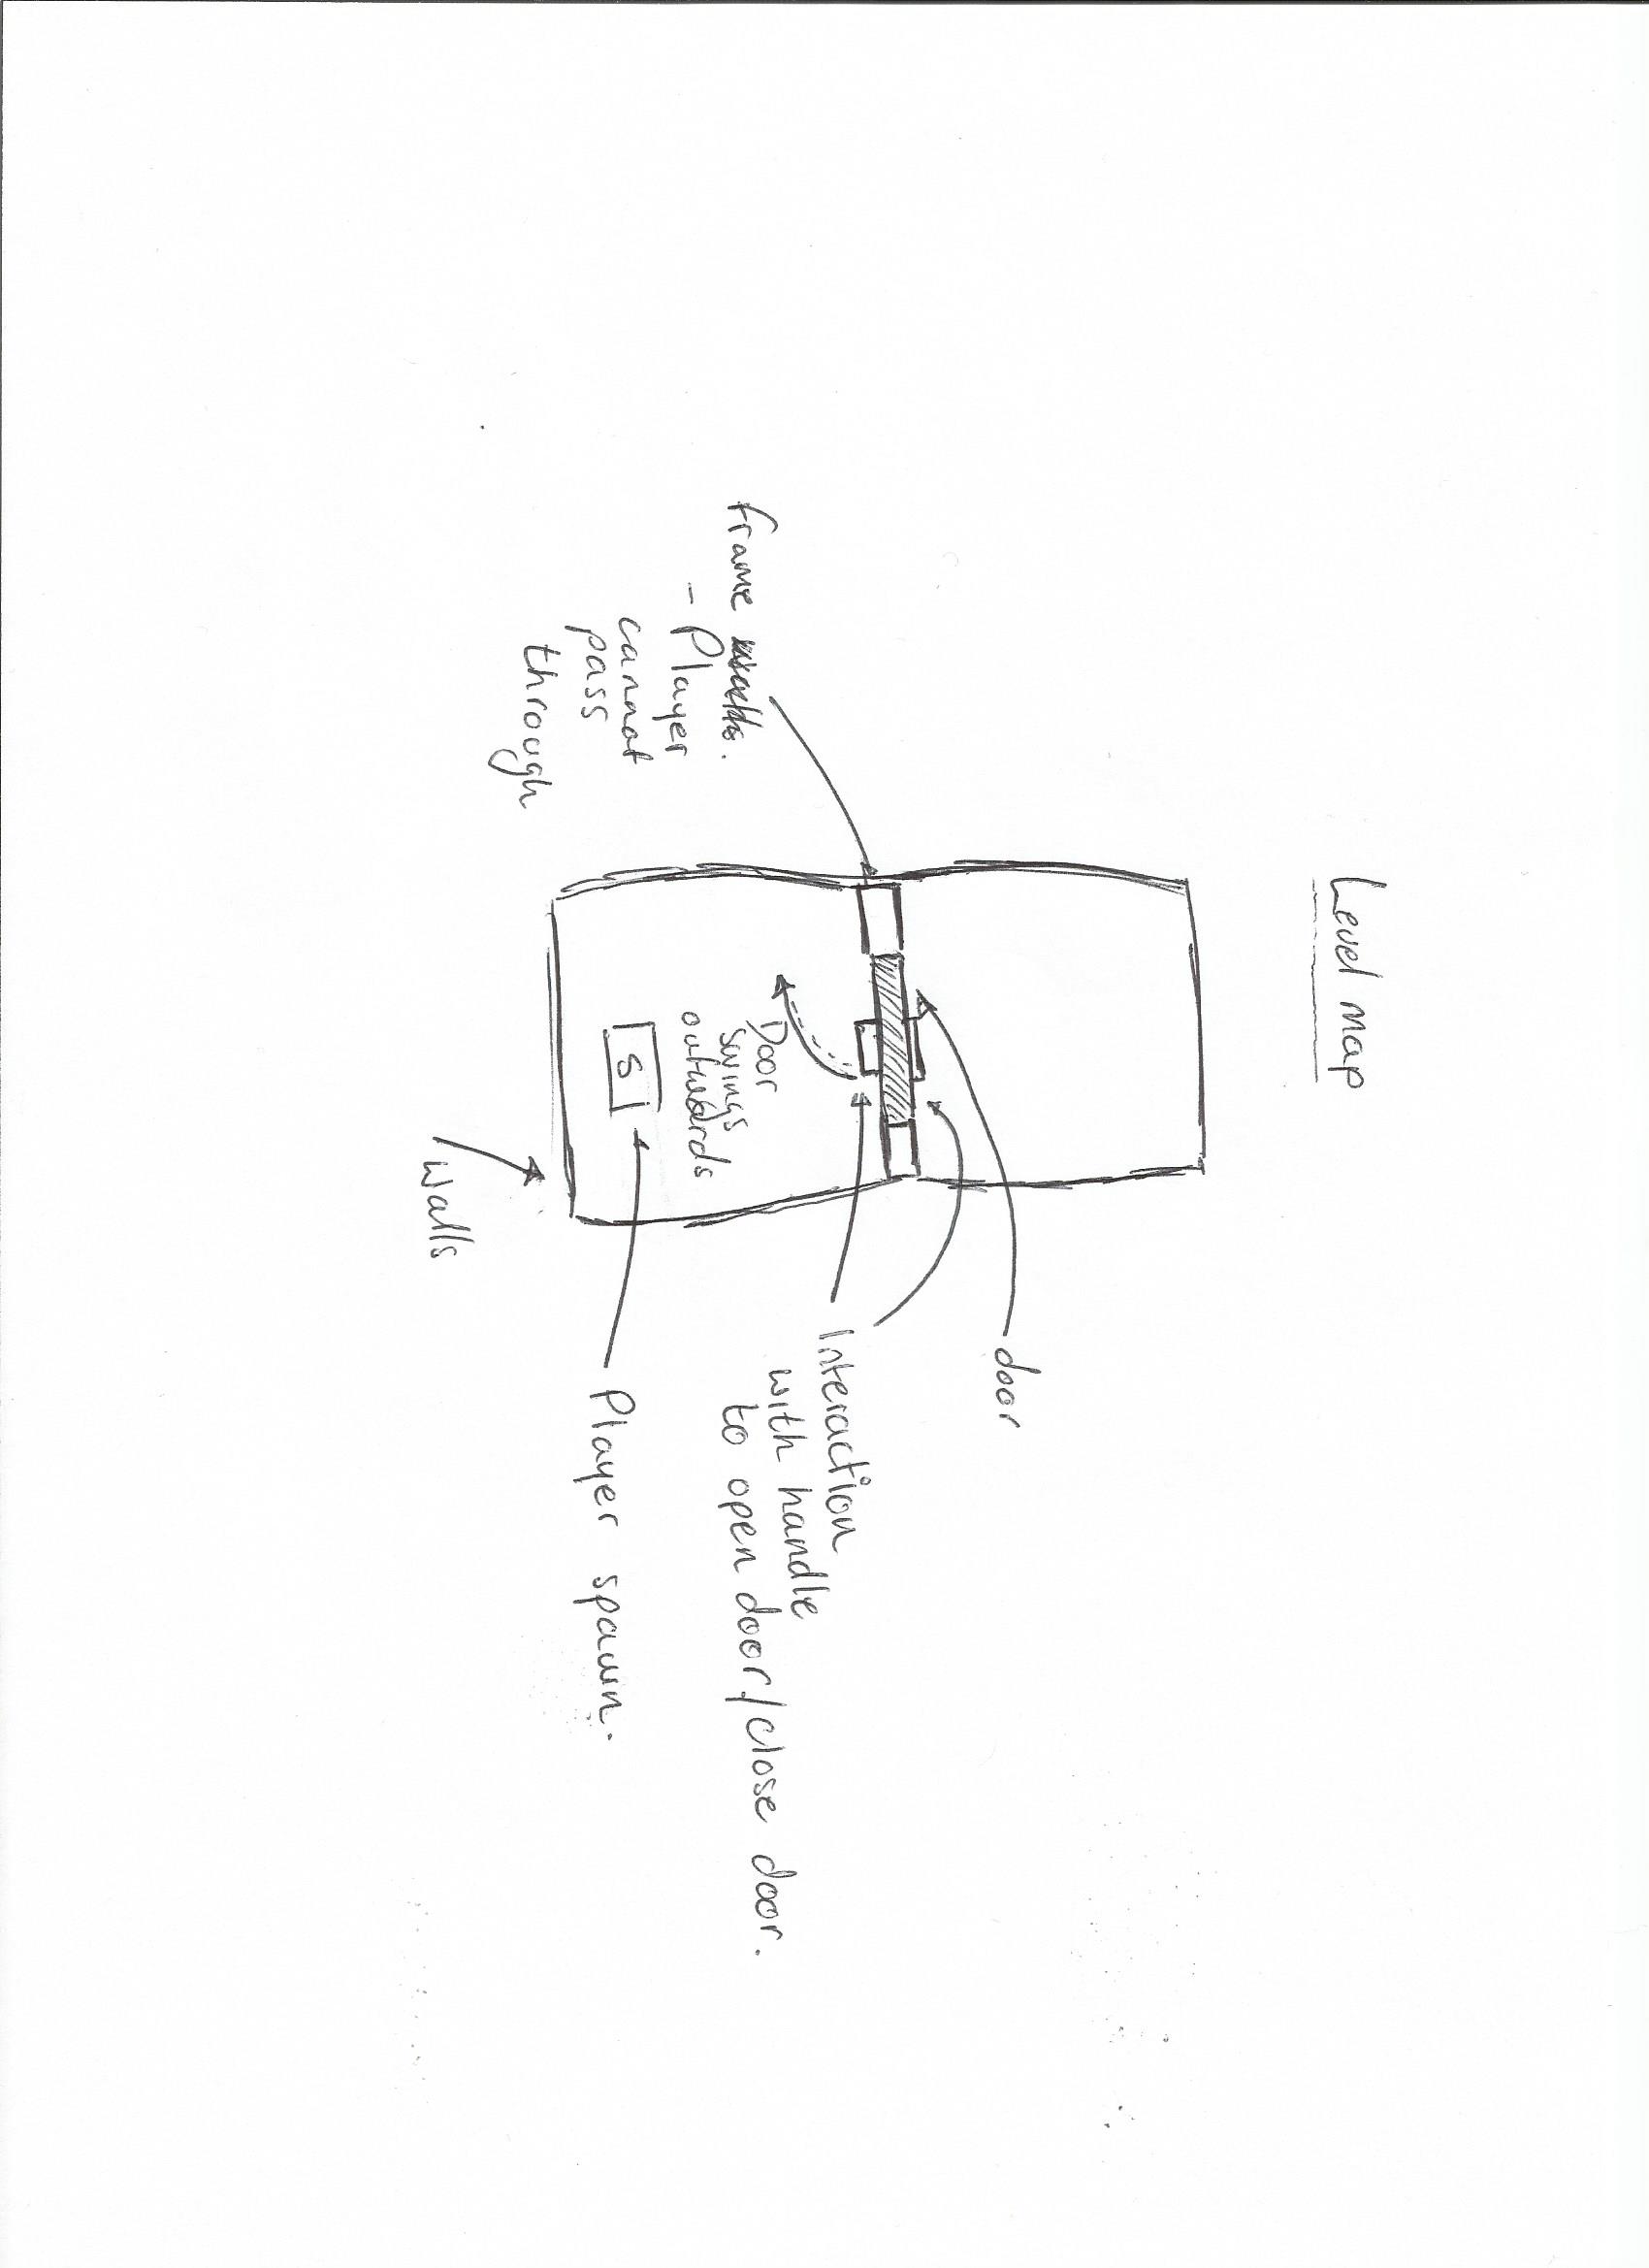 Level map
door
Interaction
with handle
to open door./close door.
frame
- Player
cannot
pass
through
Door
swings
outwards
S
Player spawn.
walls